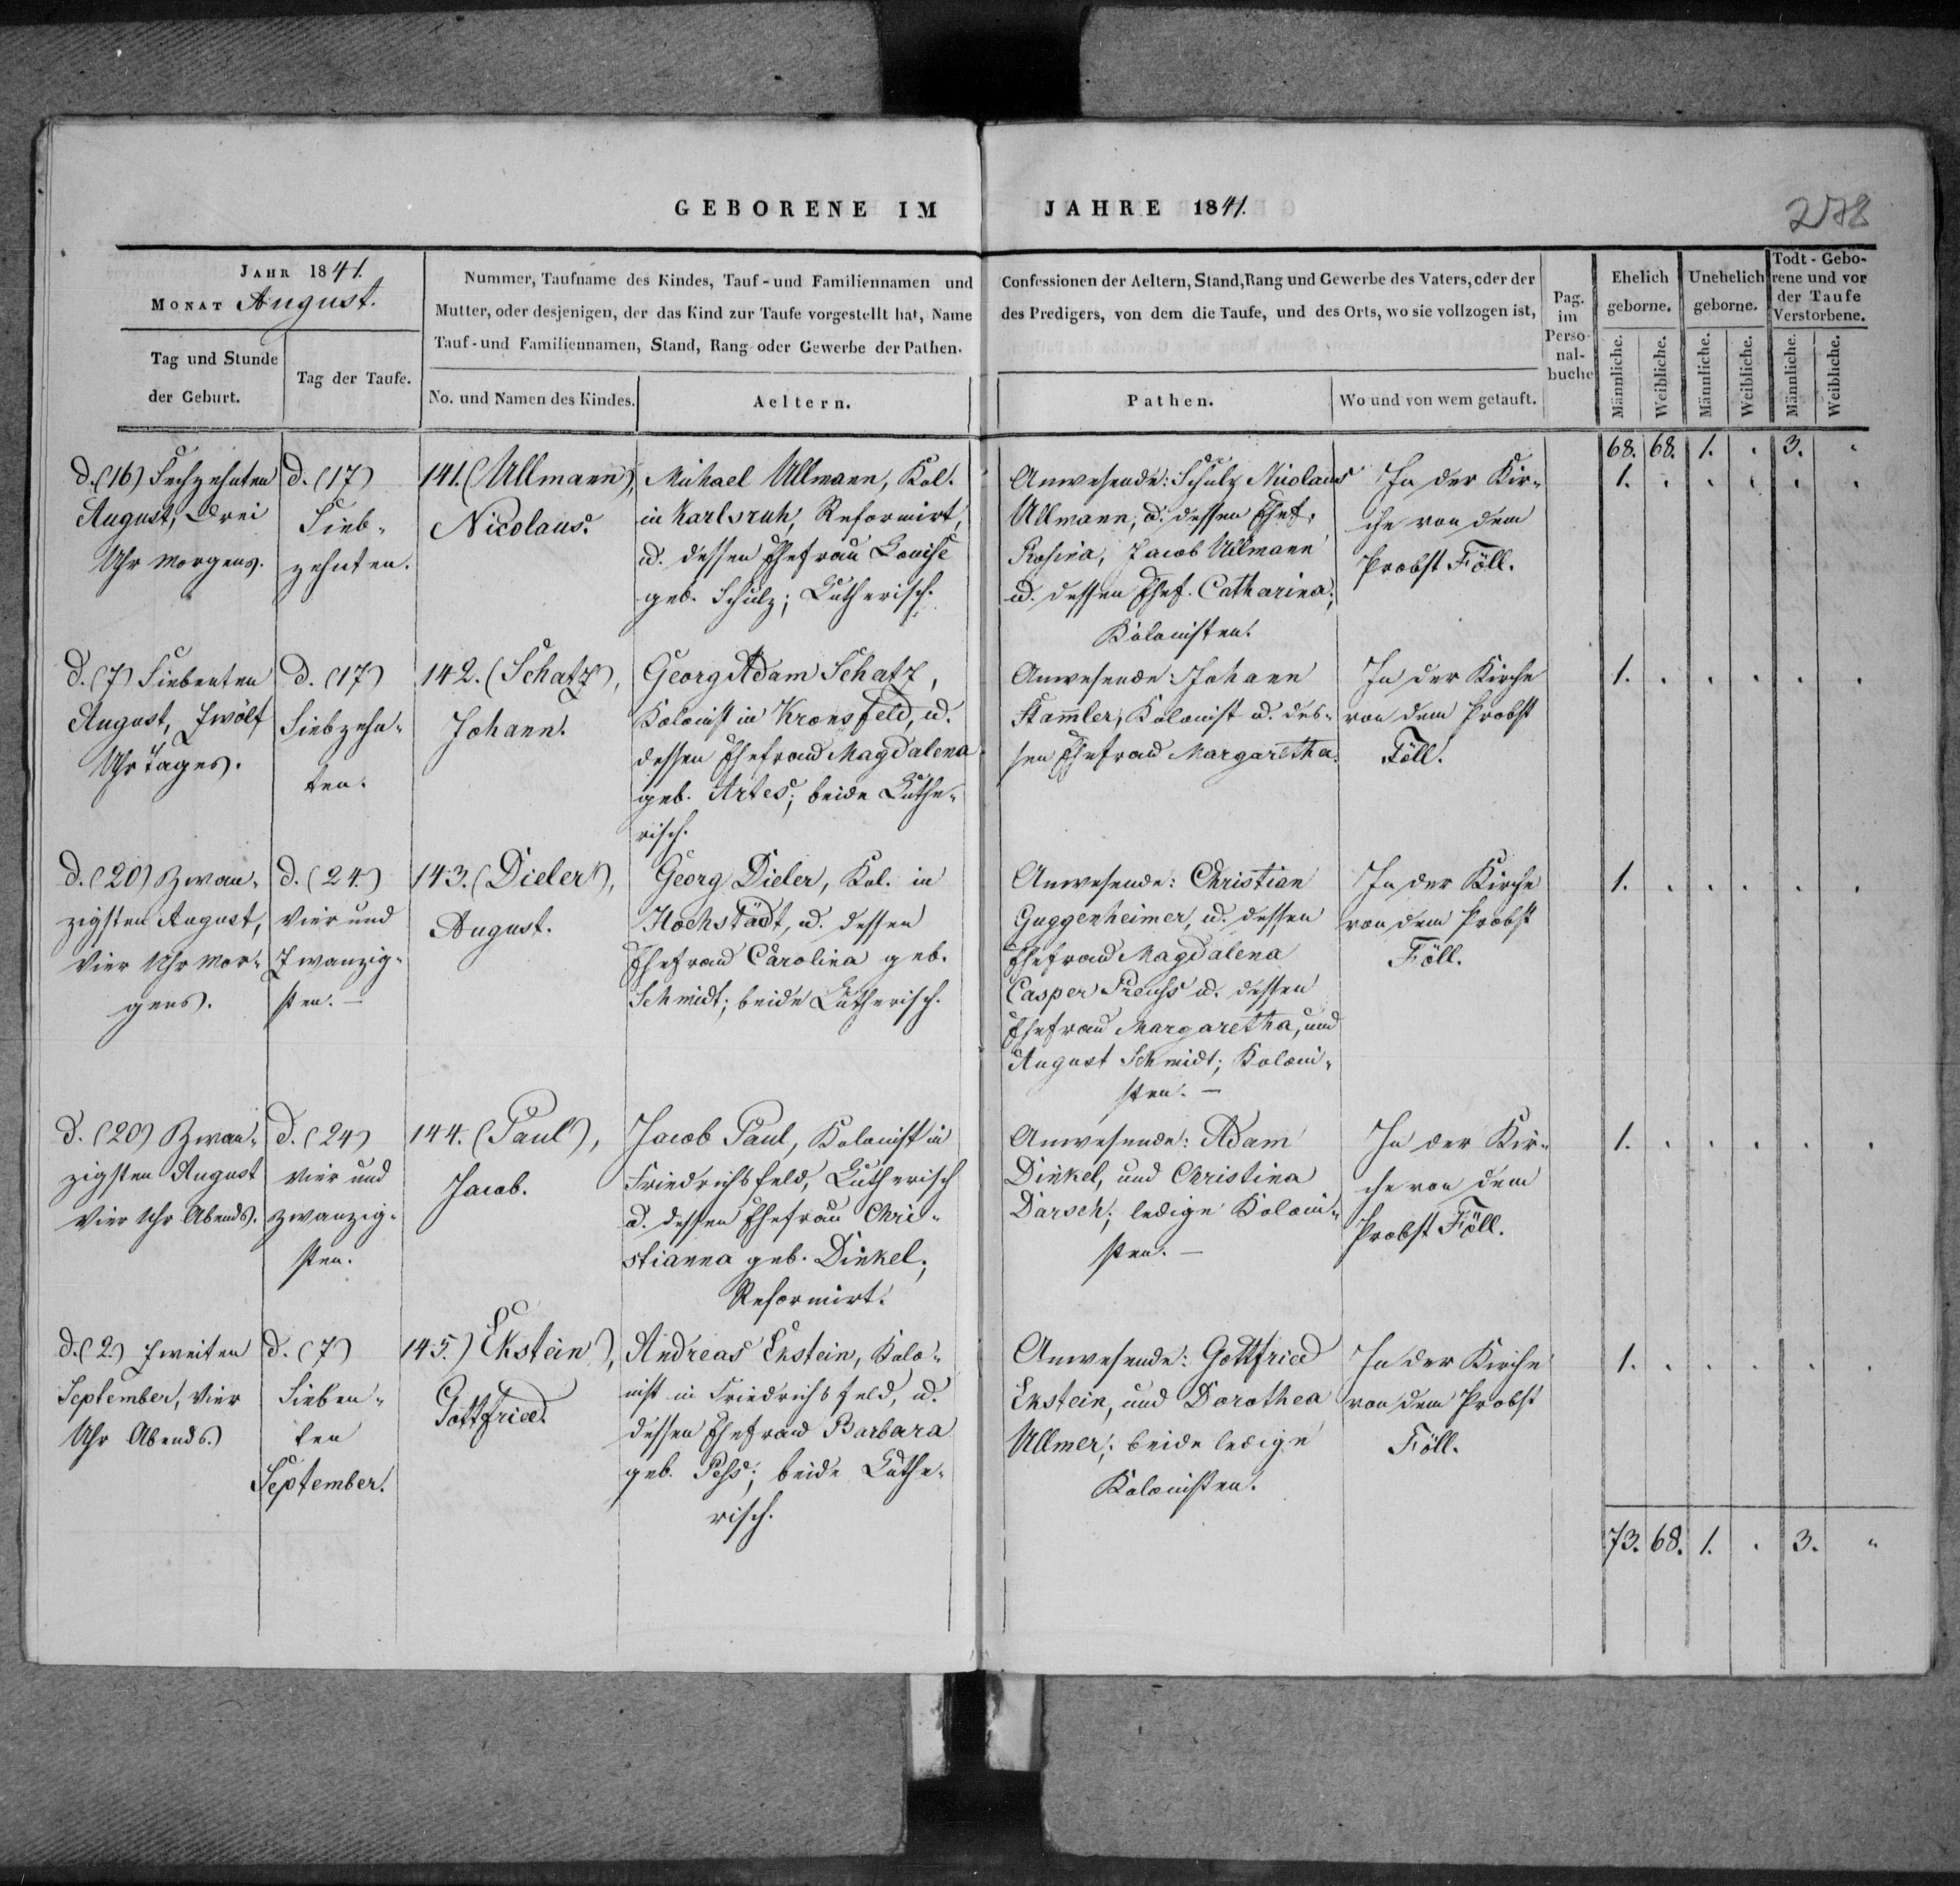 GEBORENE IM JAHRE 1841.
278
JAHR 1841.
MONAT August.
Tag und Stunde
der Geburt.
Tag der Taufe.
Nummer, Taufname des Kindes, Tauf- und Familiennamen und
Mutter, oder desjenigen, der das Kind zur Taufe vorgestellt hat, Name
Tauf- und Familiennamen, Stand, Rang oder Gewerbe der Pathen.
No. und Namen des Kindes.
Aeltern.
Confessionen der Aeltern, Stand, Rang und Gewerbe des Vaters, oder der
des Predigers, von dem die Taufe, und des Orts, wo sie vollzogen ist,
Pathen.
Wo und von wem getauft.
Pag.
im
Perso-
nal-
buche
Ehelich
geborne.
Unehelich
geborne.
Todt-Gebo-
rene und vor
der Taufe
Verstorbene.
Männliche.
Weibliche.
Männliche.
Weibliche.
Männliche.
Weibliche.
68. 68. 1. . 3. "
d. (16) Sechzehnten
August, Drei
Uhr Morgens.
d. (17)
Sieb-
zehnten.
141. (Ullmann),
Nicolaus.
Michael Ullmann, Kol.
in Karlsruh, Reformirt,
u. dessen Ehefrau Louise
geb. Schulz; Lutherisch.
Anwesende: Schulz Nicolaus
Ullmann, u. dessen Ehef.
Rosina, Jacob Ullmann
u. dessen Ehef. Catharina;
Kolonisten.
In der Kir-
che von dem
Probst Föll.
1. . . . . .
d. (7) Siebenten
August, Zwölf
Uhr Tages.
d. (17)
Siebzehn-
ten.
142. (Schatz),
Johann.
Georg Adam Schatz,
Kolonist in Kronsfeld, u.
dessen Ehefrau Magdalena
geb. Artes; beide Luthe-
risch.
Anwesende: Johann
Stamler, Kolonist u. des-
sen Ehefrau Margaretha.
In der Kirche
von dem Probst
Föll.
1. . . . . .
d. (20) Zwan-
zigsten August,
Vier Uhr Mor-
gens.
d. (24)
Vier und
Zwanzig-
sten. —
143. (Dieler),
August.
Georg Dieler, Kol. in
Hochstädt, u. dessen
Ehefrau Carolina geb.
Schmidt; beide Lutherisch.
Anwesende: Christian
Guggenheimer, u. dessen
Ehefrau Magdalena
Casper Preuss u. dessen
Ehefrau Margaretha, und
August Schmidt; Koloni-
sten. —
In der Kirche
von dem Probst
Föll.
1. . . . . .
d. (20) Zwan-
zigsten August
Vier Uhr Abends.
d. (24)
Vier und
zwanzig-
sten.
144. (Paul),
Jacob.
Jacob Paul, Kolonist in
Friedrichsfeld, Lutherisch
u. dessen Ehefrau Chri-
stianna geb. Dinkel;
Reformirt.
Anwesende: Adam
Dinkel, und Christina
Darsch; ledige Koloni-
sten. —
In der Kir-
che von dem
Probst Föll.
1. . . . . .
d. (2.) Zweiten
September, Vier
Uhr Abends.)
d. (7)
Sieben-
ten
September.
145.) Ekstein),
Gottfried.
Andreas Ekstein, Kolo-
nist in Friedrichsfeld, u.
dessen Ehefrau Barbara
geb. Pess; beide Luthe-
risch.
Anwesende: Gottfried
Ekstein, und Dorothea
Ullmer; beide ledige
Kolonisten.
In der Kirche
von dem Probst
Föll.
1. . . . . .
73. 68. 1. . 3. "